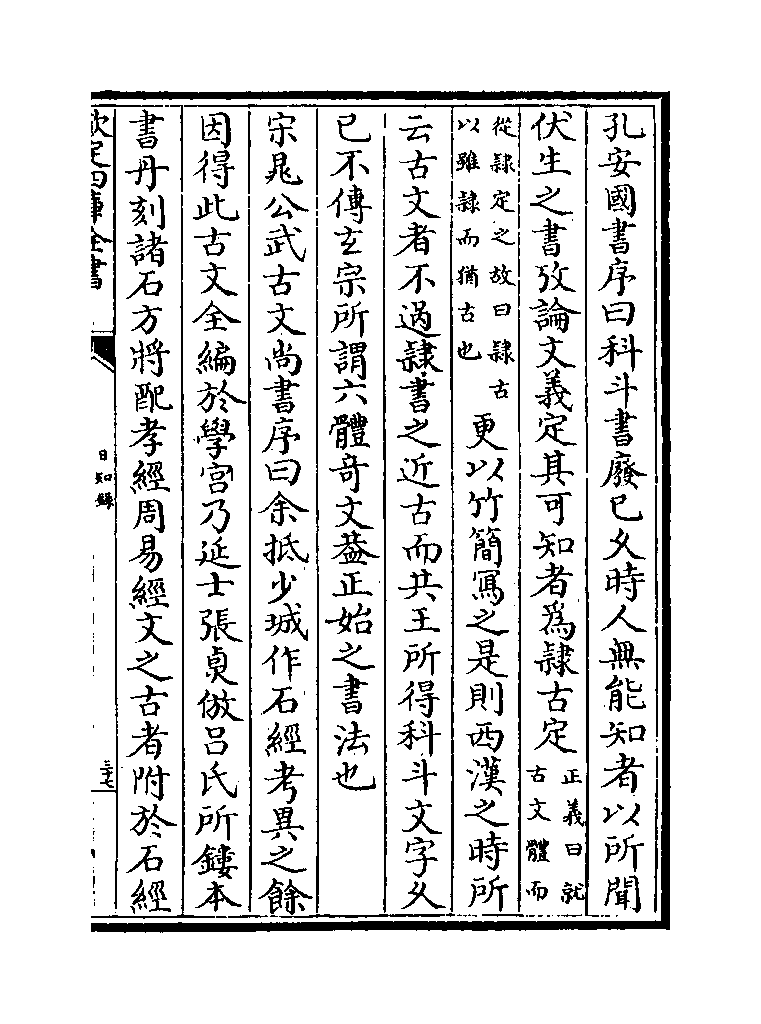 孔安國書序曰科斗書廢已久時人無能知者以所聞
伏生之書攷論文義定其可知者爲隸古定正義曰就古文體而
從隸定之故曰隸古以雖隸而猶古也更以竹簡寫之是則西漢之時所
云古文者不過隸書之近古而共王所得科斗文字久
已不傳玄宗所謂六體竒文葢正始之書法也
宋晁公武古文尚書序曰余抵少城作石經考異之餘
因得此古文全編於學宮乃延士張㒷倣呂氏所鏤本
書丹刻諸石方將配孝經周易經文之古者附於石經
欽定四庫全書
日知錄
三七